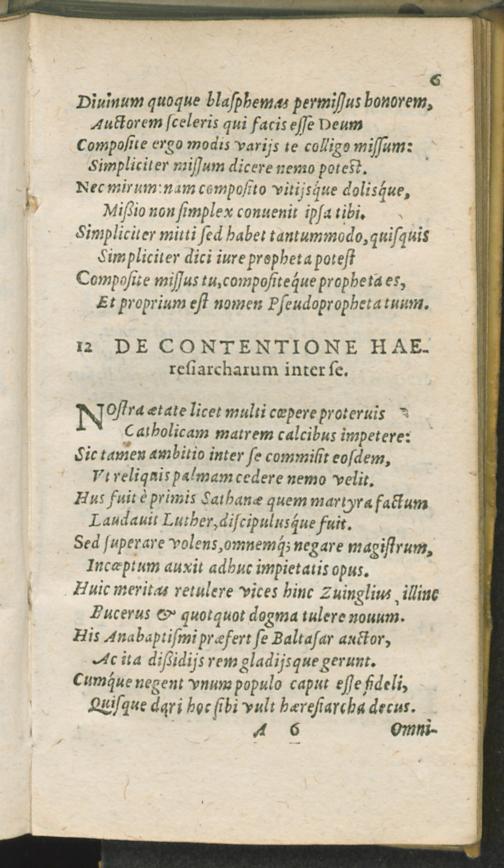 6
Diuinum quoque blaſphemas permiſſus honorem,
Auctorem ſceleris qui facis eſſe Deum
Compoſite ergo modis varijs te colligo miſſum:
Simpliciter miſſum dicere nemo poteſt.
Nec mirum: nam compoſito vitijsque dolisque,
Mißio non ſimplex conuenit ipſa tibi.
Simpliciter mitti ſed habet tantummodo, quiſquis
Simpliciter dici iure propheta poteſt
Compoſite miſſus tu, compoſitéque propheta es,
Et proprium eſt nomen Pſeudopropheta tuum.
12 DE CONTENTIONE HAE-
reſiarcharum inter ſe.
NOſtra ætate licet multi cœpere proteruis
Catholicam matrem calcibus impetere:
Sic tamen ambitio inter ſe commiſit eoſdem,
Vt reliquis palmam cedere nemo velit.
Hus fuit è primis Sathanæ quem martyra factum
Laudauit Luther, diſcipulusque fuit.
Sed ſuperare volens, omnemq́; negare magiſtrum,
Incæptum auxit adhuc impietatis opus.
Huic meritas retulere vices hinc Zuinglius, illinc
Bucerus & quotquot dogma tulere nouum.
His Anabaptiſmi præfert ſe Baltaſar auctor,
Ac ita dißidijs rem gladijsque gerunt.
Cumque negent vnum populo caput eſſe fideli,
Quiſque dari hoc ſibi vult hæreſiarcha decus.
A 6 Omni-